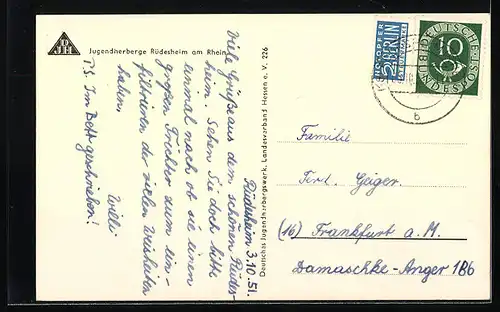 DJH
Jugendherberge Rüdesheim am Rhein
Rüdesheim 3.10.51.
Viele Grüße aus dem schönen Rüdes-
heim. Sehen Sie doch bitte
einmal nach ob sie einen
großen Trichter zum ein-
filtrieren der vielen Weisheiten
haben.
Willi
P.S. Im Bett geschrieben!
Deutsches Jugendherbergswerk, Landesverband Hessen e. V. 226
NOTOPFER
2 BERLIN
STEUERMARKE
DEUTSCHE
BUNDESPOST
10
b
Familie
Ferd. Geiger.
(16) Frankfurt a. M.
Damaschke-Anger 186